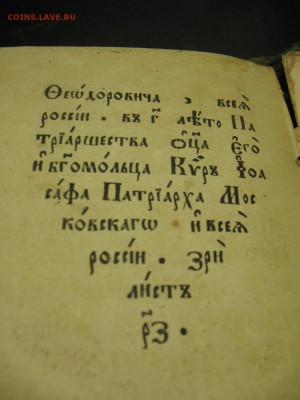 COINS.LAVE.RU
Ѳеѡ́доровича , всеѧ̀
россі́и . въ г҃ лѣ́то Па
тріа́ршества ѻ҆ц҃а̀ є҆гѡ̀
и҆ бг҃омо́льца Кѵ́ръ І҆ѻа
са́фа Патріа́рха Мос
ко́вскагѡ и҆ всеѧ̀
росси́и . зрѝ
ли́стъ
р҃з .